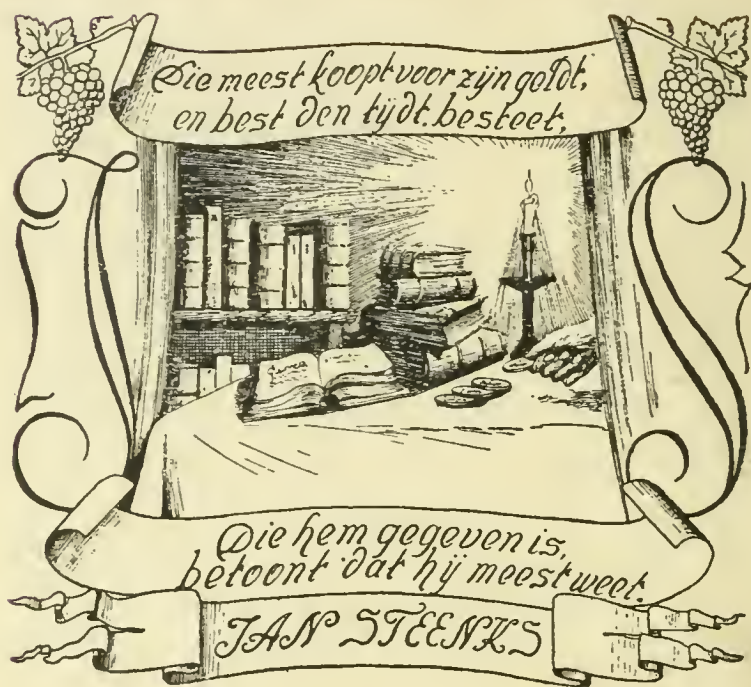 Die meest koopt voor zijn geldt,
en best den tijdt besteet,
Die hem gegeven is,
betoont dat hij meest weet.
JAN STEENKS